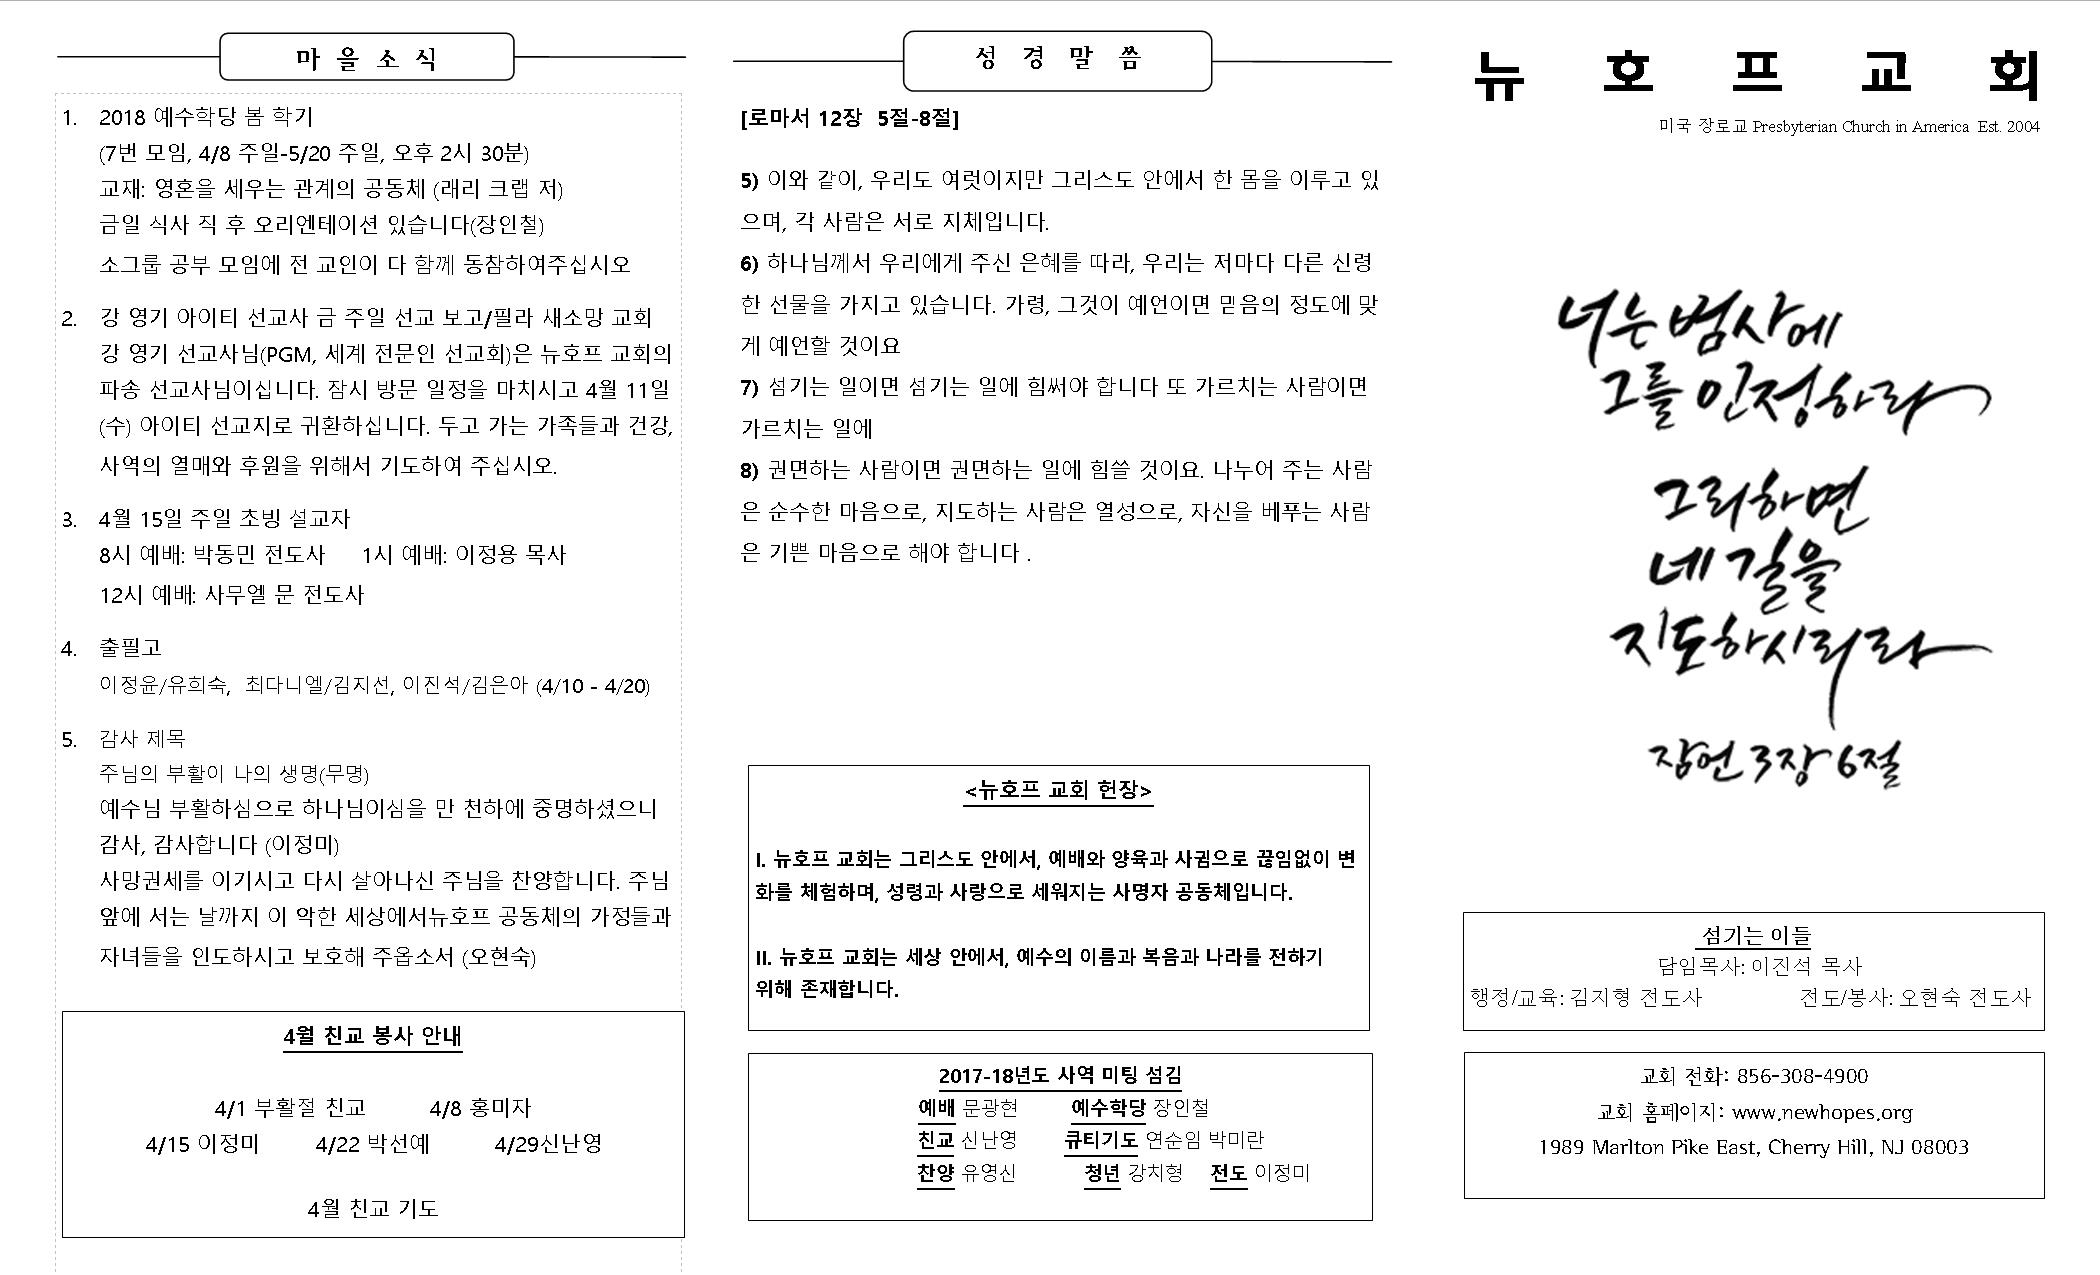 마 을 소 식
1. 2018 예수학당 봄 학기
(7번 모임, 4/8 주일-5/20 주일, 오후 2시 30분)
교재: 영혼을 세우는 관계의 공동체 (래리 크랩 저)
금일 식사 직 후 오리엔테이션 있습니다(장인철)
소그룹 공부 모임에 전 교인이 다 함께 동참하여주십시오
2. 강 영기 아이티 선교사 금 주일 선교 보고/필라 새소망 교회
강 영기 선교사님(PGM, 세계 전문인 선교회)은 뉴호프 교회의
파송 선교사님이십니다. 잠시 방문 일정을 마치시고 4월 11일
(수) 아이티 선교지로 귀환하십니다. 두고 가는 가족들과 건강,
사역의 열매와 후원을 위해서 기도하여 주십시오.
3. 4월 15일 주일 초빙 설교자
8시 예배: 박동민 전도사 1시 예배: 이정용 목사
12시 예배: 사무엘 문 전도사
4. 출필고
이정윤/유희숙, 최다니엘/김지선, 이진석/김은아 (4/10 - 4/20)
5. 감사 제목
주님의 부활이 나의 생명(무명)
예수님 부활하심으로 하나님이심을 만 천하에 중명하셨으니
감사, 감사합니다 (이정미)
사망권세를 이기시고 다시 살아나신 주님을 찬양합니다. 주님
앞에 서는 날까지 이 악한 세상에서뉴호프 공동체의 가정들과
자녀들을 인도하시고 보호해 주옵소서 (오현숙)
4월 친교 봉사 안내
4/1 부활절 친교 4/8 홍미자
4/15 이정미 4/22 박선예 4/29신난영
4월 친교 기도
성 경 말 씀
[로마서 12장 5절-8절]
5) 이와 같이, 우리도 여럿이지만 그리스도 안에서 한 몸을 이루고 있
으며, 각 사람은 서로 지체입니다.
6) 하나님께서 우리에게 주신 은혜를 따라, 우리는 저마다 다른 신령
한 선물을 가지고 있습니다. 가령, 그것이 예언이면 믿음의 정도에 맞
게 예언할 것이요
7) 섬기는 일이면 섬기는 일에 힘써야 합니다 또 가르치는 사람이면
가르치는 일에
8) 권면하는 사람이면 권면하는 일에 힘쓸 것이요. 나누어 주는 사람
은 순수한 마음으로, 지도하는 사람은 열성으로, 자신을 베푸는 사람
은 기쁜 마음으로 해야 합니다 .
<뉴호프 교회 헌장>
I. 뉴호프 교회는 그리스도 안에서, 예배와 양육과 사귐으로 끊임없이 변
화를 체험하며, 성령과 사랑으로 세워지는 사명자 공동체입니다.
II. 뉴호프 교회는 세상 안에서, 예수의 이름과 복음과 나라를 전하기
위해 존재합니다.
2017-18년도 사역 미팅 섬김
예배 문광현 예수학당 장인철
친교 신난영 큐티기도 연순임 박미란
찬양 유영신 청년 강치형 전도 이정미
뉴 호 프 교 회
미국 장로교 Presbyterian Church in America Est. 2004
너는 범사에
그를 인정하라
그리하면
네 길을
지도하시리라
잠언 3장 6절
섬기는 이들
담임목사: 이진석 목사
행정/교육: 김지형 전도사 전도/봉사: 오현숙 전도사
교회 전화: 856-308-4900
교회 홈페이지: www.newhopes.org
1989 Marlton Pike East, Cherry Hill, NJ 08003